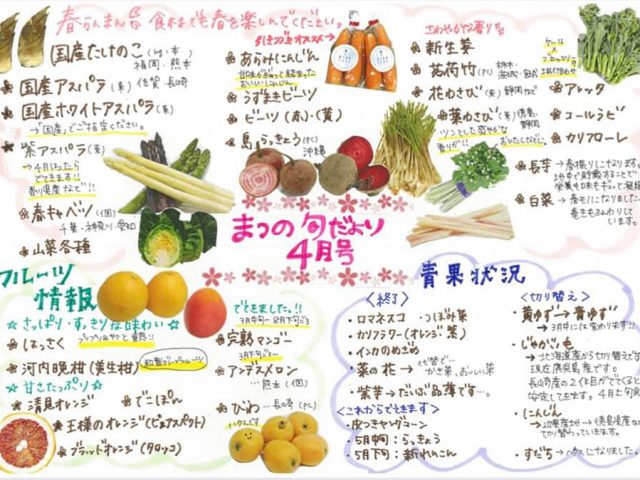 春らんまん 食材でも春を楽しんでください。
国産たけのこ
福岡・熊本
国産アスパラ(束) 佐賀・長崎
国産ホワイトアスパラ(束)
→「国産」でご指定ください。
紫アスパラ(束)
→4月に入ったら
でてきます!!
香川県産など!!
春キャベツ
千葉・神奈川・愛知
山菜各種
引き立オススメ
あらみにんじん
うずまきビーツ
ビーツ(赤)・(黄)
島らっきょう(PC)
沖縄
さわやかな香り
新生姜
茗荷竹(PC)
花わさび(束) 静岡など
葉わさび(束)
ツンとした爽やかな
香りが!!
アレッタ
コールラビ
カリフローレ
長芋
白菜
まつの旬だより
4月号
フルーツ
情報
☆さっぱり・すっきりな味わい☆
はっさく
河内晩柑(美生柑)
和製グレープフルーツ
☆甘さたっぷり☆
清見オレンジ
でこぽん
王様のオレンジ(ピュアスペクト)
ブラッドオレンジ(タロッコ)
でてきました。!!
3月中旬〜8月下旬ごろ
完熟マンゴー
3月下旬ごろ〜
アンデスメロン
…熊本
びわ …長崎(PC)
青果状況
<終了>
・ロマネスコ ・つぼみ菜
・カリフラワー(オレンジ・紫)
・インカのめざめ
・菜の花→代替で…
かき菜、おいしい菜
・紫芋→だいぶ品薄です…。
<これからでてきます>
・皮つきヤングコーン
・5月中旬:らっきょう
・5月下旬:新れんこん
<切り替え>
・黄ゆず→青ゆず
→3月中には変わります!!
・じゃがいも
→北海道産から切り替えて
現在鹿児島産です。
長崎県産の2作目がでてくると
安定してきます。4月上旬頃
・にんじん
→徳島県産など
切り替わっていきます。
・すだち→ハウスになりました。